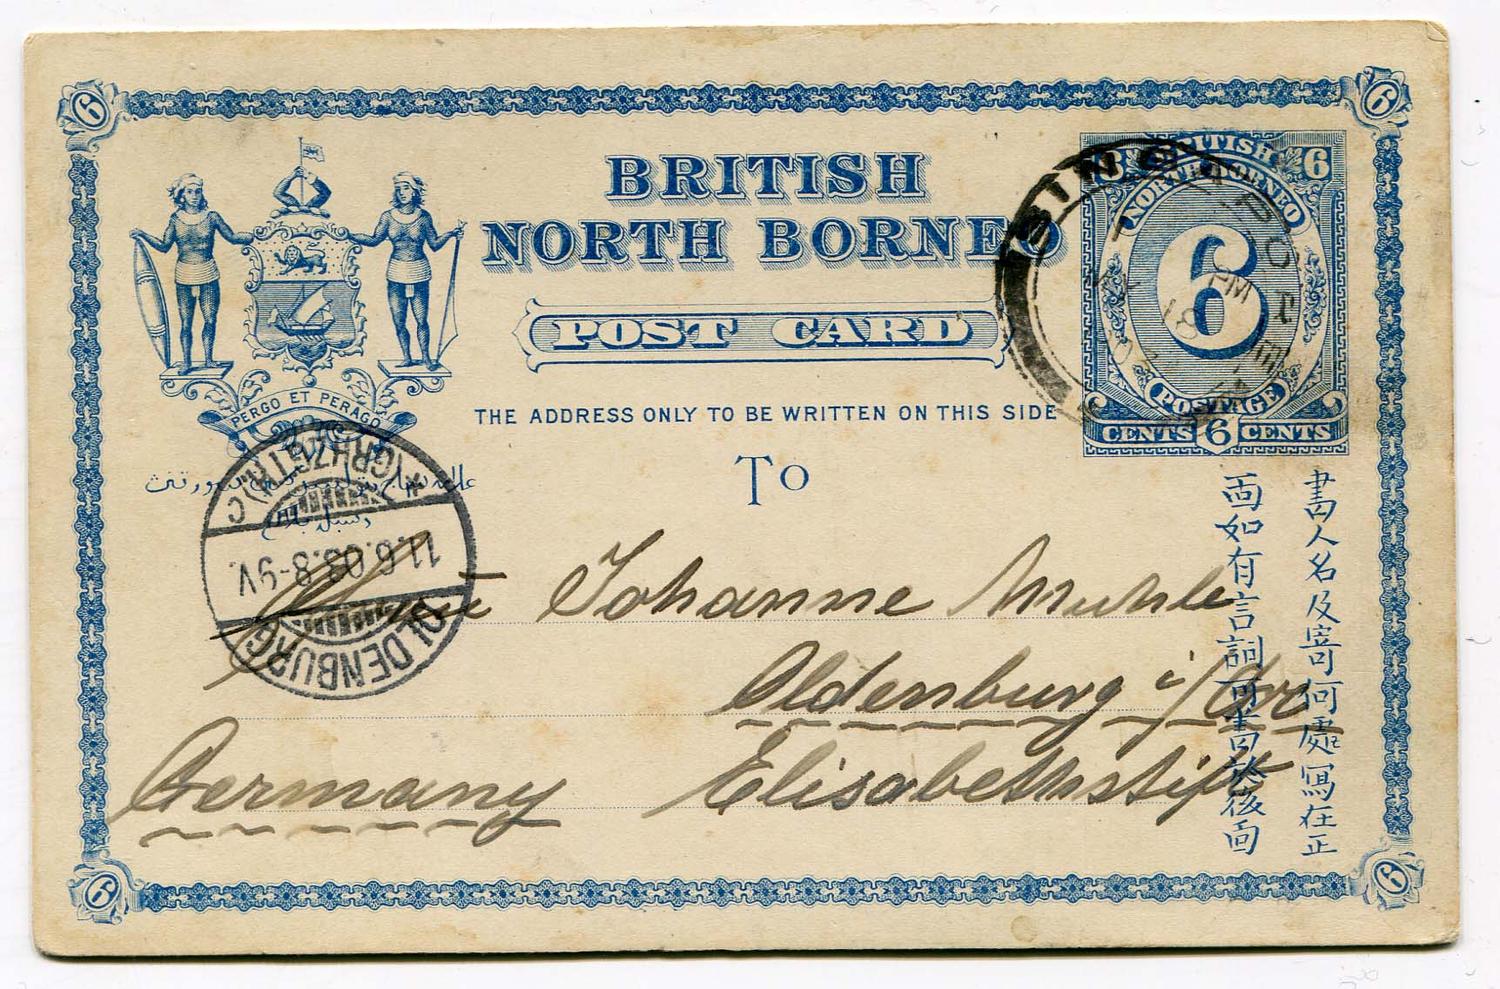 6
6
BRITISH
NORTH BORNEO
POST CARD
THE ADDRESS ONLY TO BE WRITTEN ON THIS SIDE
To
PERGO ET PERAGO
6 BRITISH 6
NORTH BORNEO
6
POSTAGE
CENTS 6 CENTS
SINGAPO
PM
18
OLDENBURG
11.6.03.8-9V.
(GRHZGTR.)C
Johanne Muhle
Oldenburg i/Gr
Elisabethstift
Germany
書人名及寄何處寫在正
面如有言詞可書於後面
6
6